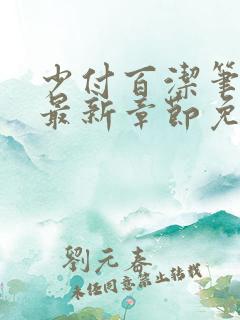 少付百潔筆
最新章節免
劉元春
未经同意禁止转载